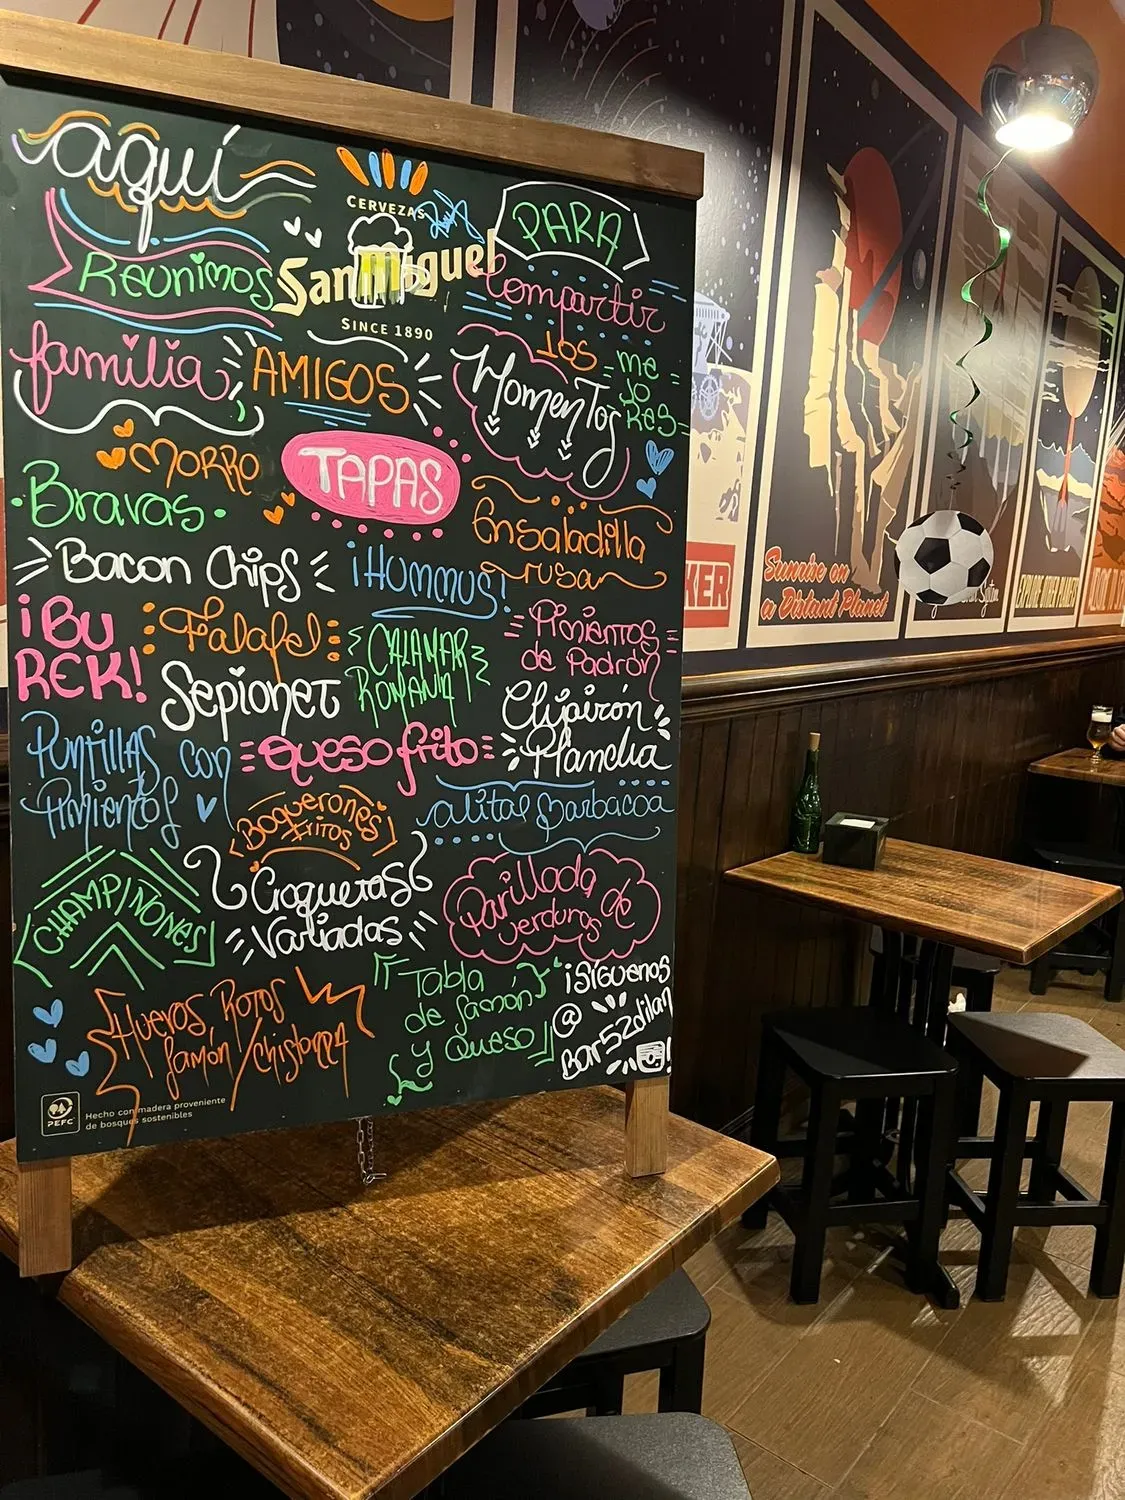 aquí
CERVEZAS
San Miguel
SINCE 1890
Reunimos
familia,
AMIGOS
PARA
compartir
los
Momentos
me
jo
Res
TAPAS
MORRO
Bravas
Ensaladilla
rusa
Bacon Chips
¡Hummus!
¡BU
REK!
Falafel
CALAMAR
ROMANA
Pimientos
de Padrón
Sepionet
Chipirón
Plancha
Puntillas con
Pimientos
Queso frito
Boquerones
fritos
alitas Barbacoa
CHAMPIÑONES
Croquetas
Variadas
Parillada de
verduras
Huevos Rotos
Jamón/chistorra
Tabla
de Jamón
y Queso
¡Síguenos
@
Bar52dilan
!
PEFC
Hecho con madera proveniente
de bosques sostenibles
KER
Sunrise on
a Distant Planet